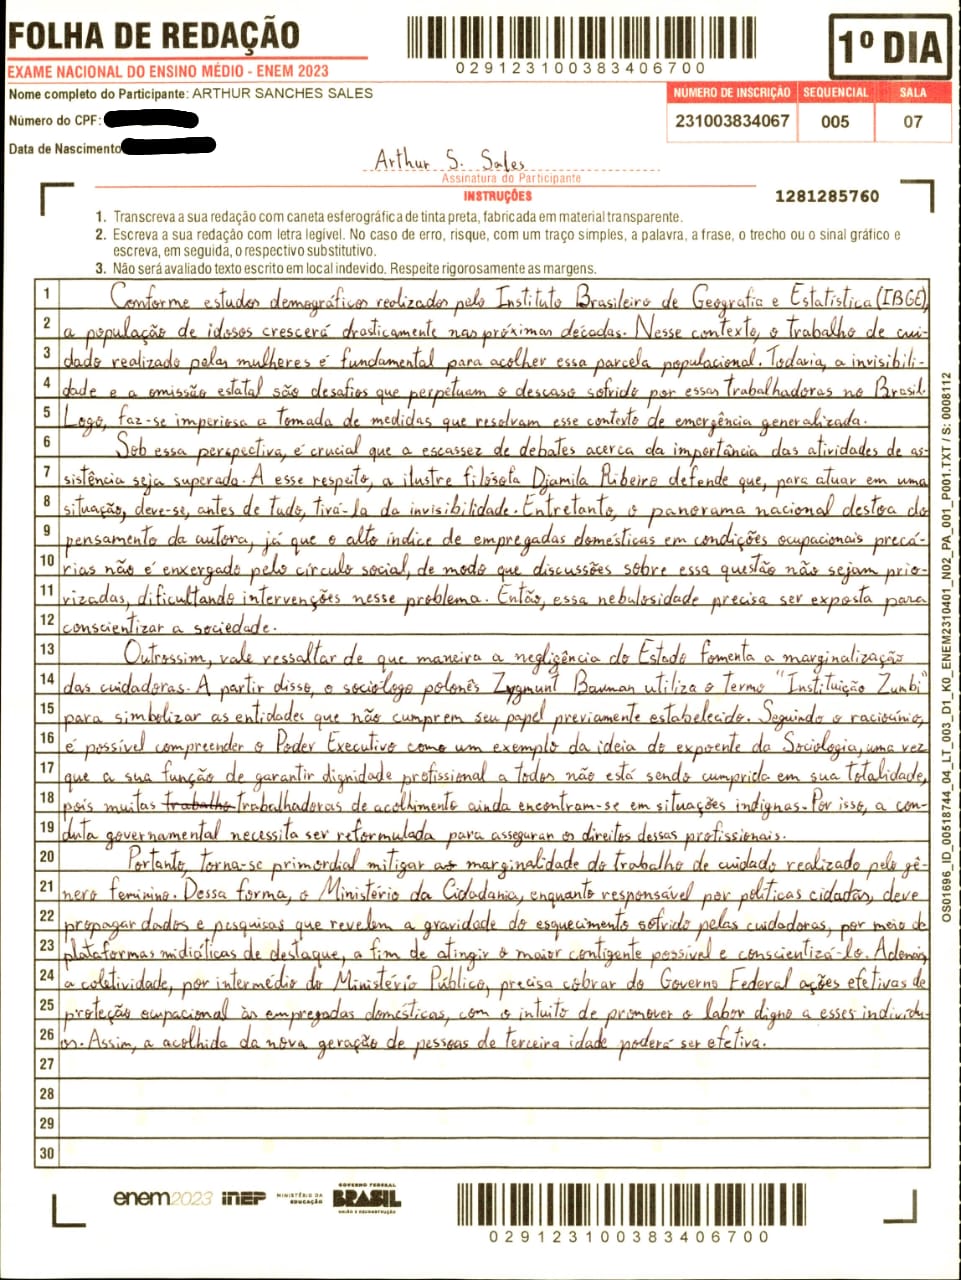 FOLHA DE REDAÇÃO
EXAME NACIONAL DO ENSINO MÉDIO - ENEM 2023
029123100383406700
1º DIA
Nome completo do Participante: ARTHUR SANCHES SALES
Número do CPF:
Data de Nascimento
NÚMERO DE INSCRIÇÃO SEQUENCIAL SALA
231003834067 005 07
Arthur S. Sales
Assinatura do Participante
INSTRUÇÕES
1281285760
1. Transcreva a sua redação com caneta esferográfica de tinta preta, fabricada em material transparente.
2. Escreva a sua redação com letra legível. No caso de erro, risque, com um traço simples, a palavra, a frase, o trecho ou o sinal gráfico e
escreva, em seguida, o respectivo substitutivo.
3. Não será avaliado texto escrito em local indevido. Respeite rigorosamente as margens.
1 Conforme estudos demográficos realizados pelo Instituto Brasileiro de Geografia e Estatística (IBGE),
2 a população de idosos crescerá drasticamente nas próximas décadas. Nesse contexto, o trabalho de cui-
3 dado realizado pelas mulheres é fundamental para acolher essa parcela populacional. Todavia, a invisibili-
4 dade e a omissão estatal são desafios que perpetuam o descaso sofrido por essas trabalhadoras no Brasil.
5 Logo, faz-se imperiosa a tomada de medidas que resolvam esse contexto de emergência generalizada.
6 Sob essa perspectiva, é crucial que a escassez de debates acerca da importância das atividades de as-
7 sistência seja superada. A esse respeito, a ilustre filósofa Djamila Ribeiro defende que, para atuar em uma
8 situação, deve-se, antes de tudo, tirá-la da invisibilidade. Entretanto, o panorama nacional destoa do
9 pensamento da autora, já que o alto índice de empregadas domésticas em condições ocupacionais precá-
10 rias não é enxergado pelo círculo social, de modo que discussões sobre essa questão não sejam prio-
11 rizadas, dificultando intervenções nesse problema. Então, essa nebulosidade precisa ser exposta para
12 conscientizar a sociedade.
13 Outrossim, vale ressaltar de que maneira a negligência do Estado fomenta a marginalização
14 das cuidadoras. A partir disso, o sociólogo polonês Zygmunt Bauman utiliza o termo "Instituição Zumbi"
15 para simbolizar as entidades que não cumprem seu papel previamente estabelecido. Seguindo o raciocínio,
16 é possível compreender o Poder Executivo como um exemplo da ideia do expoente da Sociologia, uma vez
17 que a sua função de garantir dignidade profissional a todos não está sendo cumprida em sua totalidade,
18 pois muitas trabalho trabalhadoras de acolhimento ainda encontram-se em situações indignas. Por isso, a con-
19 duta governamental necessita ser reformulada para asseguran os direitos dessas profissionais.
20 Portanto, torna-se primordial mitigar as marginalidade do trabalho de cuidado realizado pelo gê-
21 nero feminino. Dessa forma, o Ministério da Cidadania, enquanto responsável por políticas cidadãs, deve
22 propagar dados e pesquisas que revelem a gravidade do esquecimento sofrido pelas cuidadoras, por meio de
23 plataformas midiáticas de destaque, a fim de atingir o maior contigente possível e conscientizá-lo. Ademais,
24 a coletividade, por intermédio do Ministério Público, precisa cobrar do Governo Federal ações efetivas de
25 proteção ocupacional às empregadas domésticas, com o intuito de promover o labor digno a esses indivídu-
26 os. Assim, a acolhida da nova geração de pessoas de terceira idade poderá ser efetiva.
27
28
29
30
OS01696_ID_00518744_04_LT_003_D1_K0_ENEM2310401_N02_PA_001_P001.TXT / S: 0008112
enem2023 inep MINISTÉRIO DA EDUCAÇÃO GOVERNO FEDERAL BRASIL UNIÃO E RECONSTRUÇÃO
029123100383406700